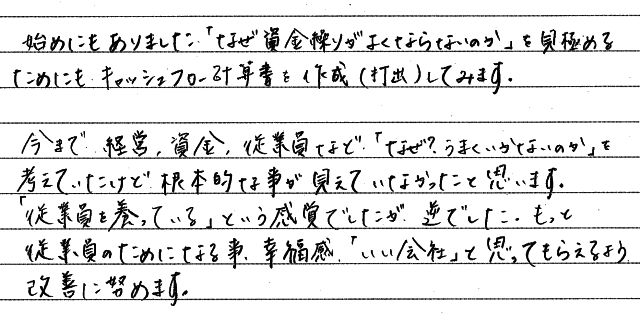 始めにもありました「なぜ資金繰りがよくならないのか」を見極める
ためにも キャッシュフロー計算書を作成(打出)してみます。
今まで 経営、資金、従業員など「なぜ?うまくいかないのか」を
考えていたけど 根本的な事が見えていなかったと思います。
「従業員を養っている」という感覚でしたが 逆でした。もっと
従業員のためになる事、幸福感、「いい会社」と思ってもらえるよう
改善に努めます。